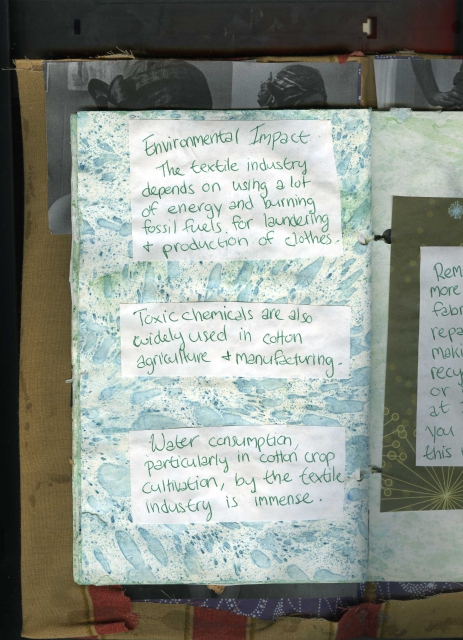 Environmental Impact
The textile industry
depends on using a lot
of energy and burning
fossil fuels. for laundering
+ production of clothes.
Toxic chemicals are also
widely used in cotton
agriculture + manufacturing.
Water consumption,
particularly in cotton crop
cultivation, by the textile
industry is immense.
Rem
more
fabr
repa
makin
recy
or
at
you
this